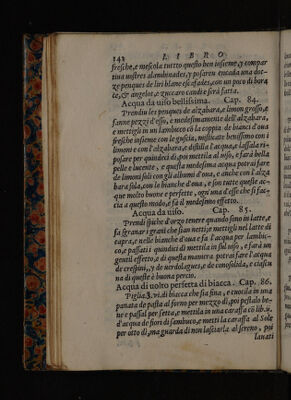 142 LIBRO
fresche, e mescola tutto questo ben insieme, y compar
tiua uostres alambinades, y posareu encada una dot-
ze penques de liri blanc escefades, con un poco di bora
ce, & angelot, e zuccaro candi e sirà fatta.
Acqua da uiso bellissima. Cap. 84.
Prendi les penques de alzabara, e limon grosso, e
fanne pezzi d'esso, e medesimamente dell'alzabara,
e mettigli in un lambicco cõ la coppia di bianci d'oua
fresche insieme con le guscia, misticate benissimo con i
limoni e con l'alzabara, e distilla l'acqua, e lassala ri-
posare per quindeci dì, poi mettila al uiso, e farà bella
pelle e lucente, e questa medesima acqua potrai fare
de limoni soli con gli albumi d'oua, e anche con l'alza
bara sola, con le bianche d'oua, e son tutte queste ac-
que molto buone e perfette, ogni una d'esse che si fac-
cia a questo modo, e fà il medesimo effetto.
Acqua da uiso. Cap. 85.
Prendi spiche d'orzo tenere quando sono in latte, e
fa sgranar i grani che sian netti, e mettigli nel latte di
capra, e nelle bianche d'oua e fa l'acqua per lambic-
co, e passati i quindeci dì mettila in sul uiso, e farà un
gentil effetto, e di questa maniera potrai fare l'acqua
de cressini, y de uerdolagues, e de consolida, e ciascu
na di queste è buona percio.
Acqua di uolto perfetta di biacca. Cap. 86.
Piglia.3.vi.di biacca che sia fina, e cuocila in una
panata de pasta al forno per mezzo dì, poi pestalo be-
ne e passal per setta, e mettila in una caraffa cõ lib.ij.
d'acqua de fiori di sambuco, e metti la caraffa al Sole
per otto dì, ma guarda di non lasciarla al sereno, poi
lauati